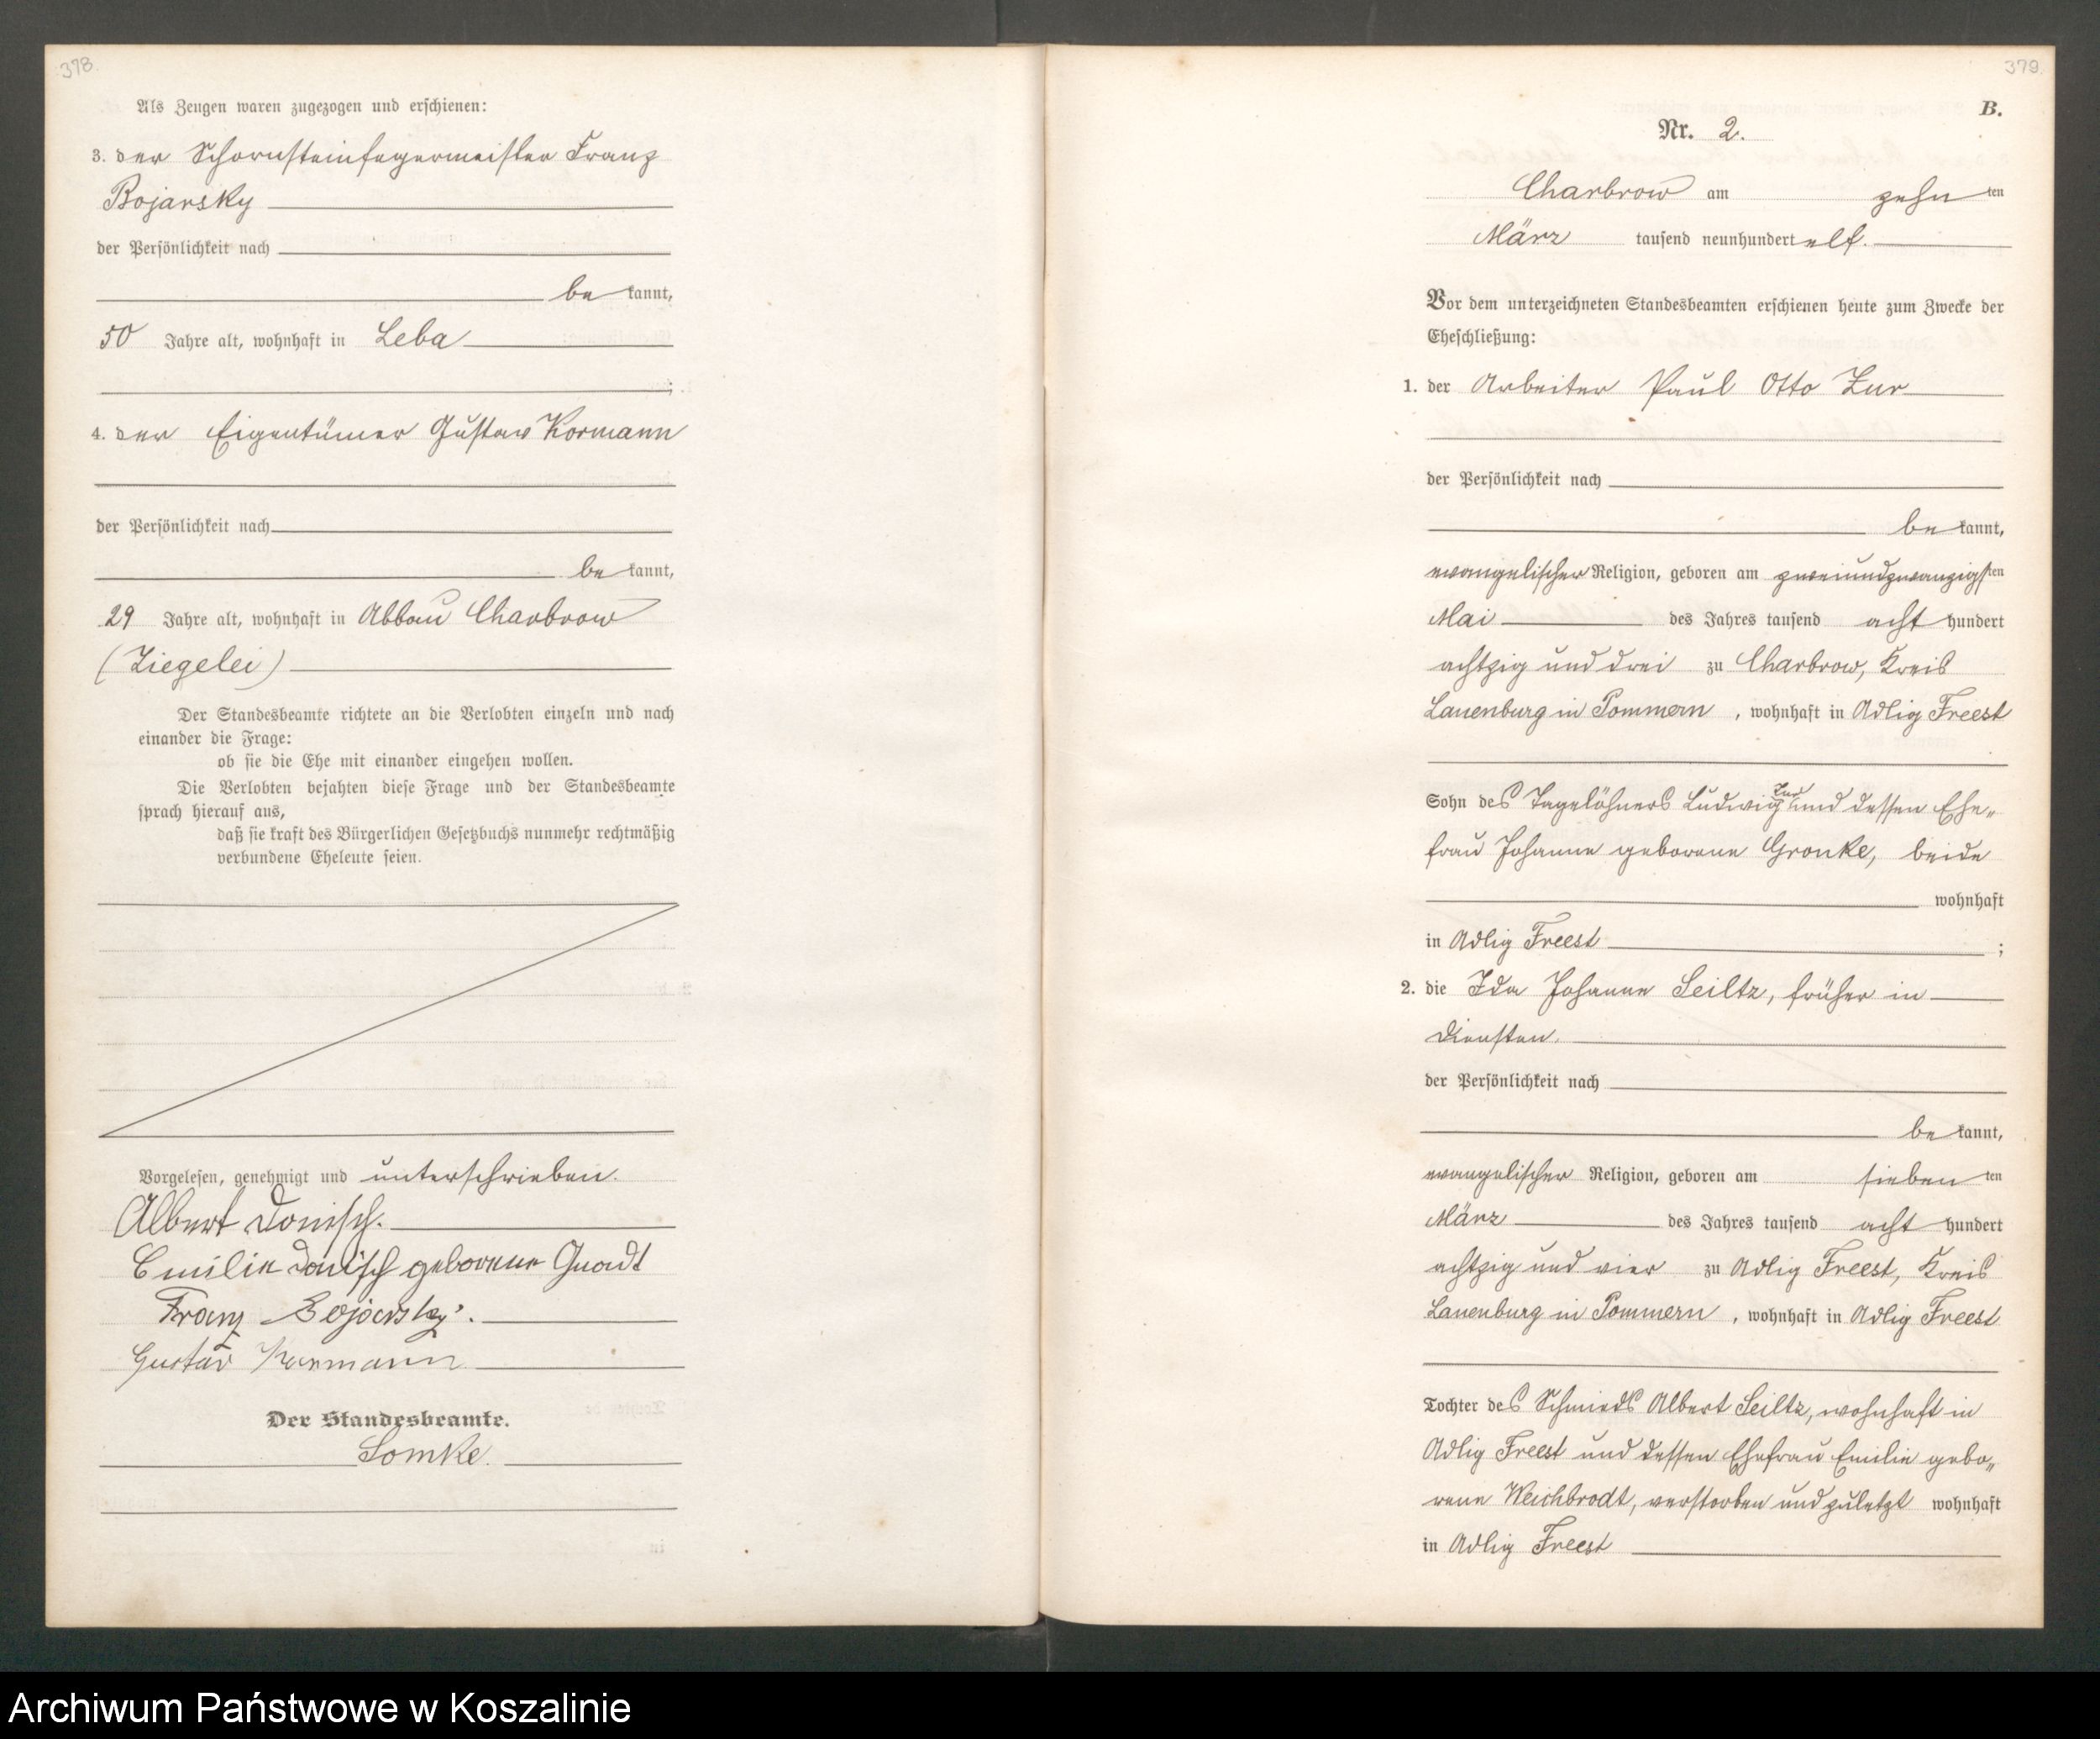 378.
Als Zeugen waren zugezogen und erschienen:
3. der Schornsteinfegermeister Franz
Bojarsky
der Persönlichkeit nach
be kannt,
50 Jahre alt, wohnhaft in Leba
;
4. der Eigentümer Gustav Kormann
der Persönlichkeit nach
be kannt,
29 Jahre alt, wohnhaft in Abbau Charbrow
(Ziegelei)
Der Standesbeamte richtete an die Verlobten einzeln und nach
einander die Frage:
ob sie die Ehe mit einander eingehen wollen.
Die Verlobten bejahten diese Frage und der Standesbeamte
sprach hierauf aus,
daß sie kraft des Bürgerlichen Gesetzbuchs nunmehr rechtmäßig
verbundene Eheleute seien.
Vorgelesen, genehmigt und unterschrieben.
Albert Donisch.
Emilie Donisch geborene Quadt
Franz Bojarsky.
Gustav Kormann
Der Standesbeamte.
Lomke.
379.
B.
Nr. 2.
Charbrow am zehn ten
März tausend neunhundert elf.
Vor dem unterzeichneten Standesbeamten erschienen heute zum Zwecke der
Eheschließung:
1. der Arbeiter Paul Otto Zur
der Persönlichkeit nach
be kannt,
evangelischer Religion, geboren am zweiundzwanzigsten
Mai des Jahres tausend acht hundert
achtzig und drei zu Charbrow, Kreis
Lauenburg in Pommern, wohnhaft in Adlig Freest
Sohn des Tagelöhners Ludwig Zur und dessen Ehe„
frau Johanne geborene Gronke, beide
wohnhaft
in Adlig Freest ;
2. die Ida Johanne Seiltz, früher in
Diensten.
der Persönlichkeit nach
be kannt,
evangelischer Religion, geboren am sieben ten
März des Jahres tausend acht hundert
achtzig und vier zu Adlig Freest, Kreis
Lauenburg in Pommern, wohnhaft in Adlig Freest
Tochter des Schmieds Albert Seiltz, wohnhaft in
Adlig Freest und dessen Ehefrau Emilie gebo„
rene Weichbrodt, verstorben und zuletzt wohnhaft
in Adlig Freest
Archiwum Państwowe w Koszalinie